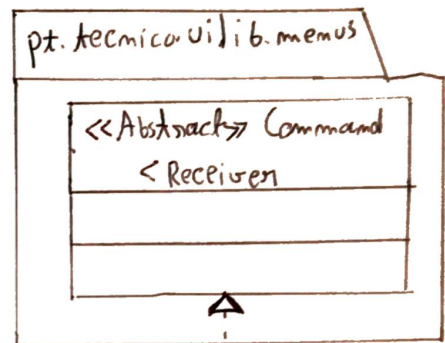 pt.tecnico.uilib.menus
<<Abstract>> Command
< Receiver